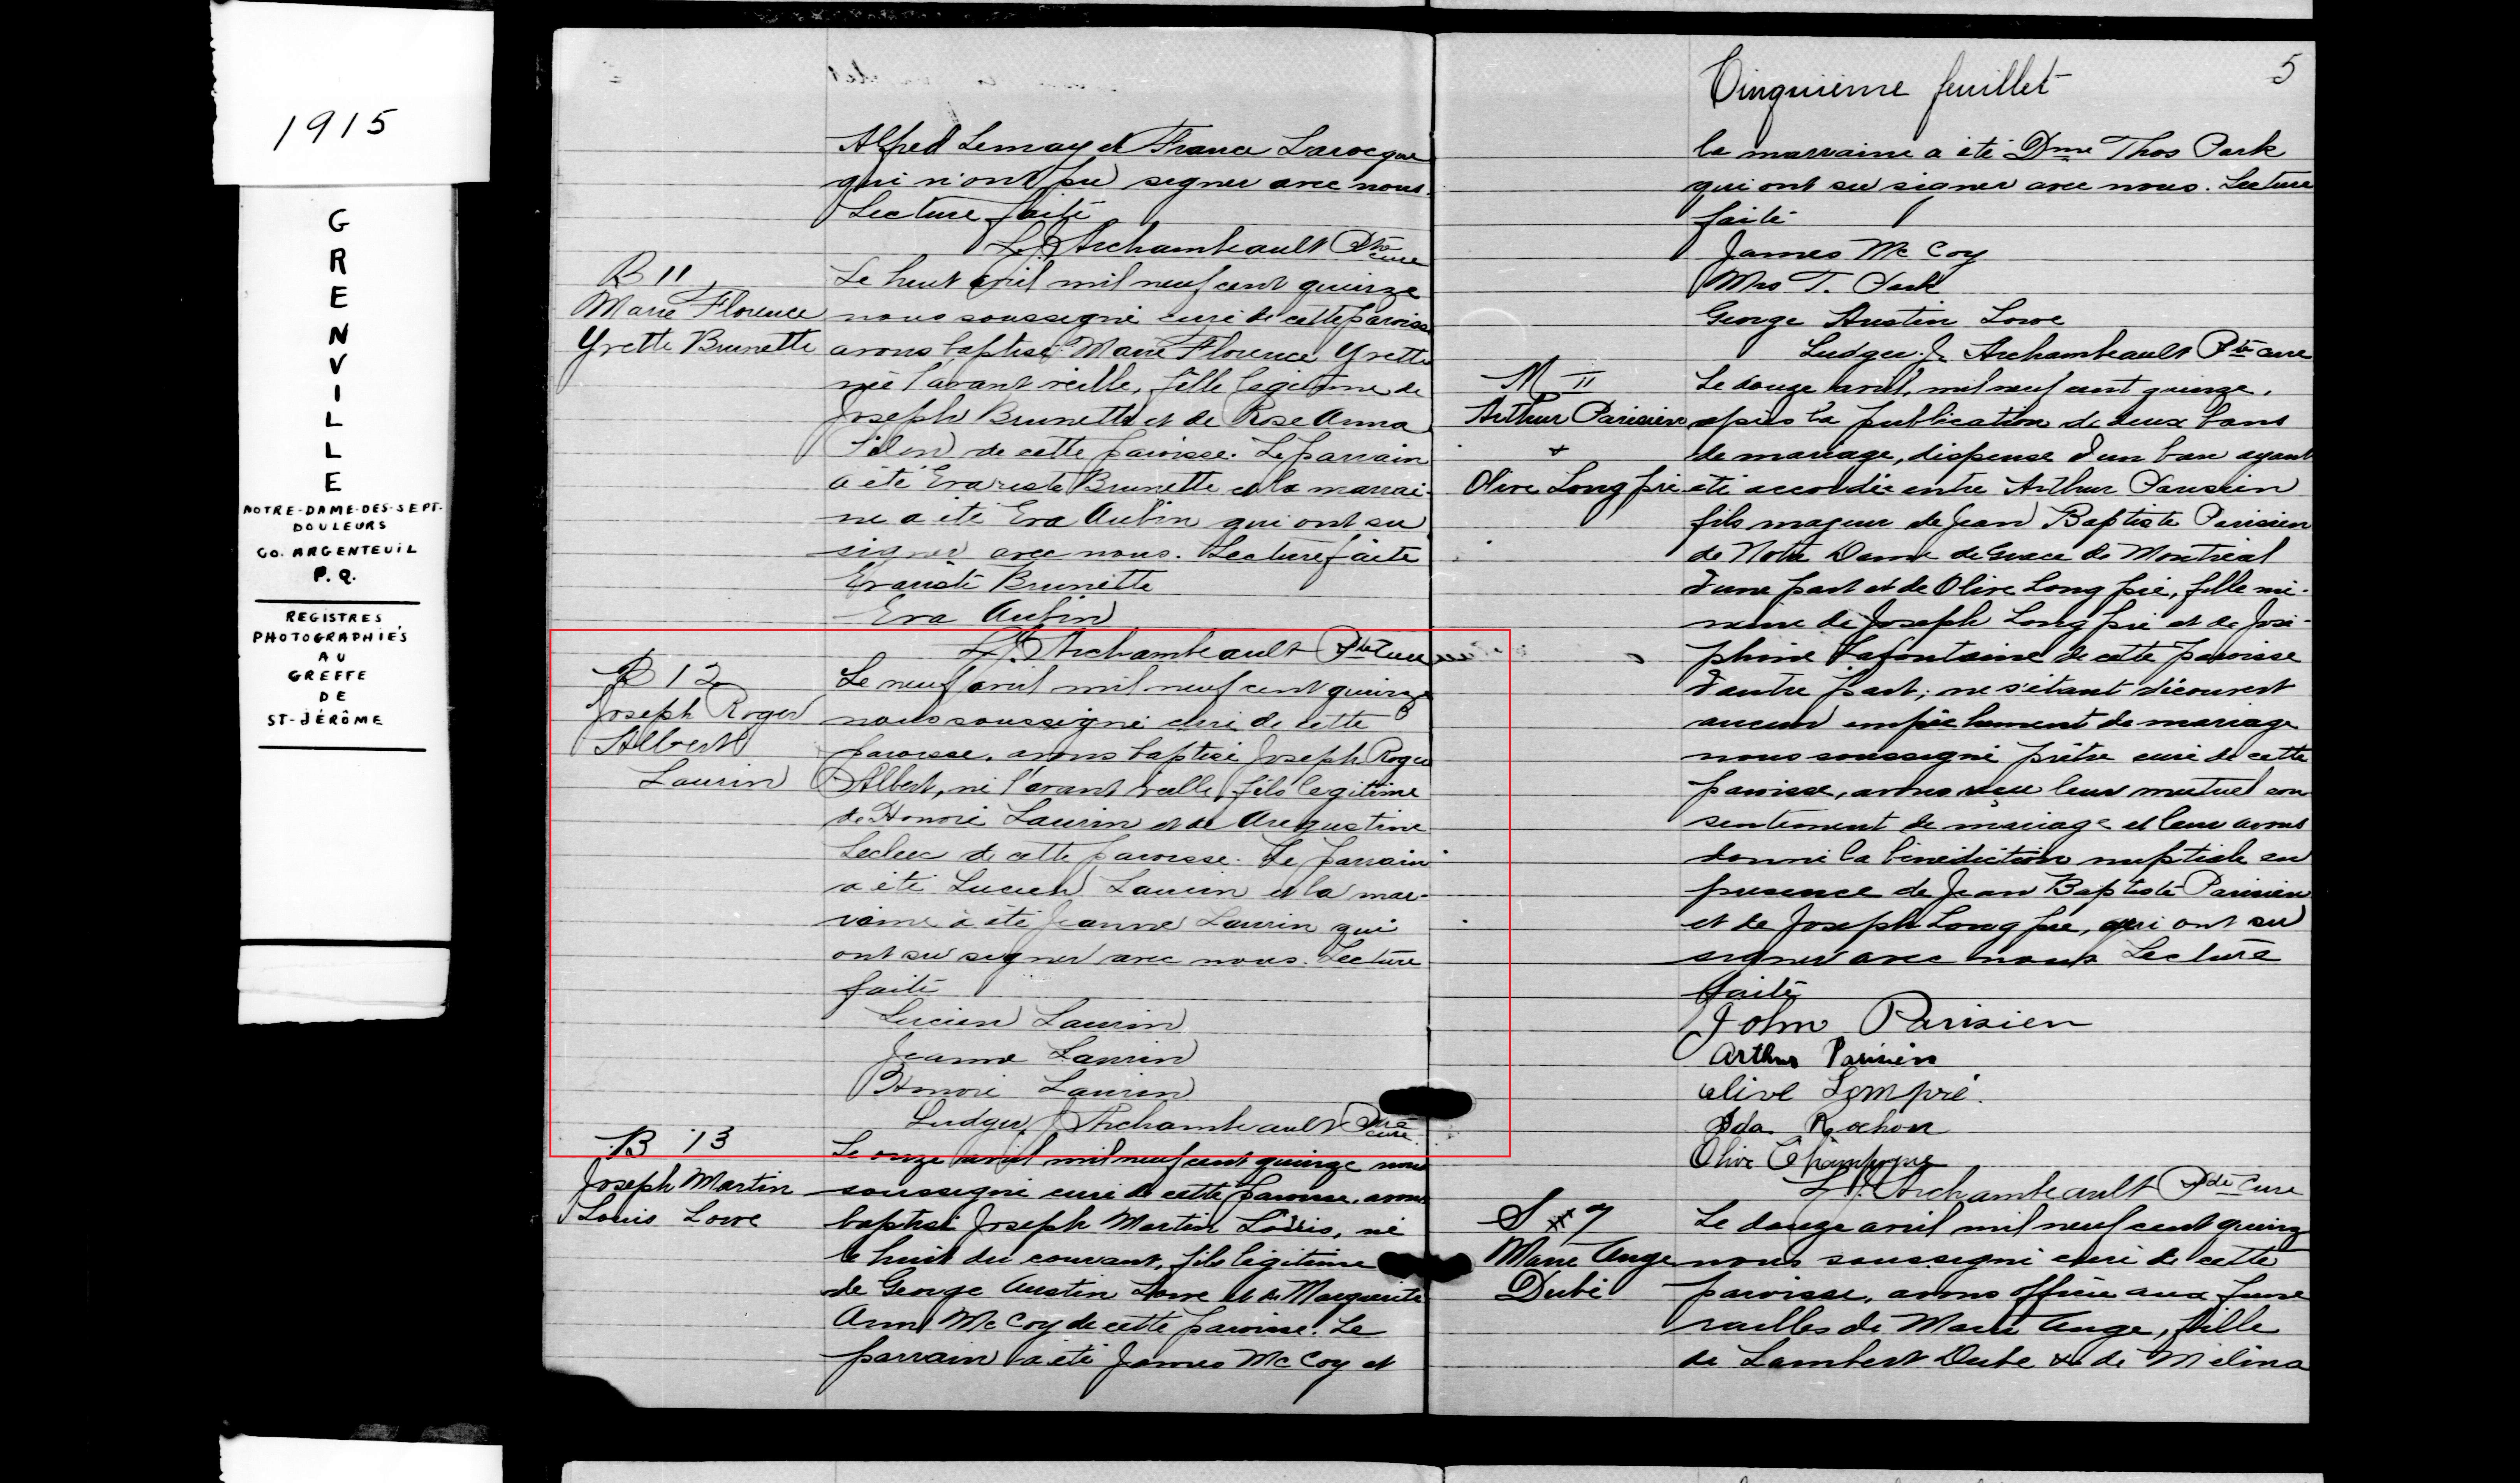 1915
GRENVILLE
NOTRE-DAME-DES-SEPT-
DOULEURS
CO. ARGENTEUIL
P. Q.
REGISTRES
PHOTOGRAPHIÉS
AU
GREFFE
DE
ST-JÉRÔME
Alfred Lemay et France Larocque
qui n'ont pu signer avec nous.
Lecture faite
L. J. Archambeault Ptre curé
B 11
Marie Florence
Yvette Brunette
Le huit avril mil neuf cent quinze
nous soussigné curé de cette paroisse
avons baptisé Marie Florence Yvette
née l'avant veille, fille légitime de
Joseph Brunette et de Rose Anna
Filon de cette paroisse. Le parrain
a été Evariste Brunette et la marrai-
ne a été Eva Aubin qui ont su
signer avec nous. Lecture faite
Evariste Brunette
Eva Aubin
L. J. Archambeault Ptre Curé
B 12
Joseph Roger
Albert
Laurin
Le neuf avril mil neuf cent quinze
nous soussigné curé de cette
paroisse, avons baptisé Joseph Roger
Albert, né l'avant veille, fils légitime
de Honoré Laurin et de Augustine
Leclerc de cette paroisse. Le parrain
a été Lucien Laurin et la mar-
raine a été Jeanne Laurin qui
ont su signer avec nous. Lecture
faite
Lucien Laurin
Jeanne Laurin
Honoré Laurin
Ludger J. Archambeault Ptre curé
B 13
Joseph Martin
Louis Lowe
Le onze avril mil neuf cent quinze nous
soussigné curé de cette paroisse, avons
baptisé Joseph Martin Louis, né
le huit du courant, fils légitime
de George Austin Lowe et de Marguerite
Ann McCoy de cette paroisse. Le
parrain a été James McCoy et
Cinquième feuillet 5
la marraine a été Dme Thos Park
qui ont su signer avec nous. Lecture
faite
James McCoy
Mrs T. Park
George Austin Lowe
Ludger J. Archambeault Ptre curé
M II
Arthur Parisien
+
Olive Longpré
Le douze avril, mil neuf cent quinze,
après la publication de deux bans
de mariage, dispense d'un ban ayant
été accordée entre Arthur Parisien
fils majeur de Jean Baptiste Parisien
de Notre Dame de Grace de Montréal
d'une part et de Olive Longpré, fille mi-
neure de Joseph Longpré et de José-
phine Lafontaine de cette paroisse
d'autre part; ne s'étant découvert
aucun empêchement de mariage
nous soussigné prêtre curé de cette
paroisse, avons reçu leur mutuel con
sentement de mariage et leur avons
donné la bénédiction nuptiale en
présence de Jean Baptiste Parisien
et de Joseph Longpré, qui ont su
signer avec nous Lecture
faite
John Parisien
Arthur Parisien
Olive Lompré.
Ida Rochon
Olive
L. J. Archambeault Ptre Curé
S 7
Marie Ange
Dubé
Le douze avril mil neuf cent quinz
nous soussigné curé de cette
paroisse, avons officié aux funé
railles de Marie Ange, fille
de Lambert Dube & de Mélina